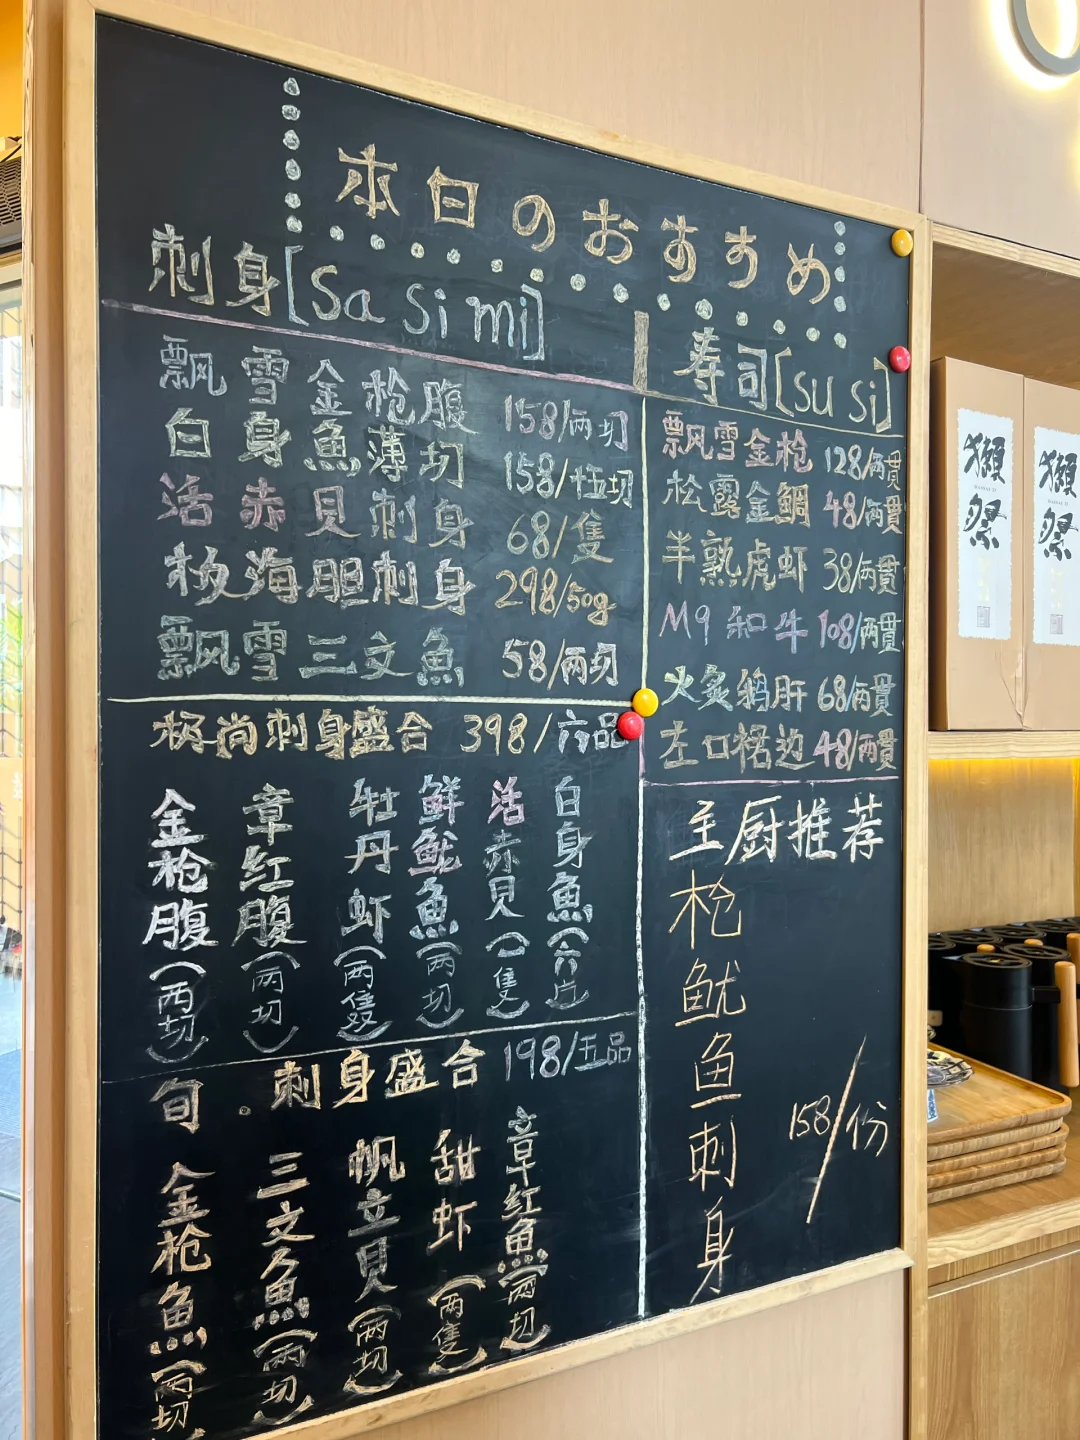 本日のおすすめ
刺身[Sa Si mi]
飘雪金枪腹 158/两切
白身魚薄切 158/伍切
活赤贝刺身 68/隻
海胆刺身 298/50g
飘雪三文魚 58/两切
尚刺身盛合 398/六品
金枪腹(两切)
章红腹(两切)
牡丹虾(两隻)
鲜鱿魚(两切)
活赤贝(一隻)
白身魚(六片)
旬.刺身盛合 198/五品
金枪魚(两切)
三文魚(两切)
帆立贝(两切)
甜虾(两隻)
章红魚(两切)
寿司[su si]
飘雪金枪 128/两贯
松露金鲷 48/两贯
半熟虎虾 38/两贯
M9和牛 108/两贯
火炙鹅肝 68/两贯
左口裙边 48/两贯
主厨推荐
枪鱿鱼刺身
158/份
獺祭
獺祭